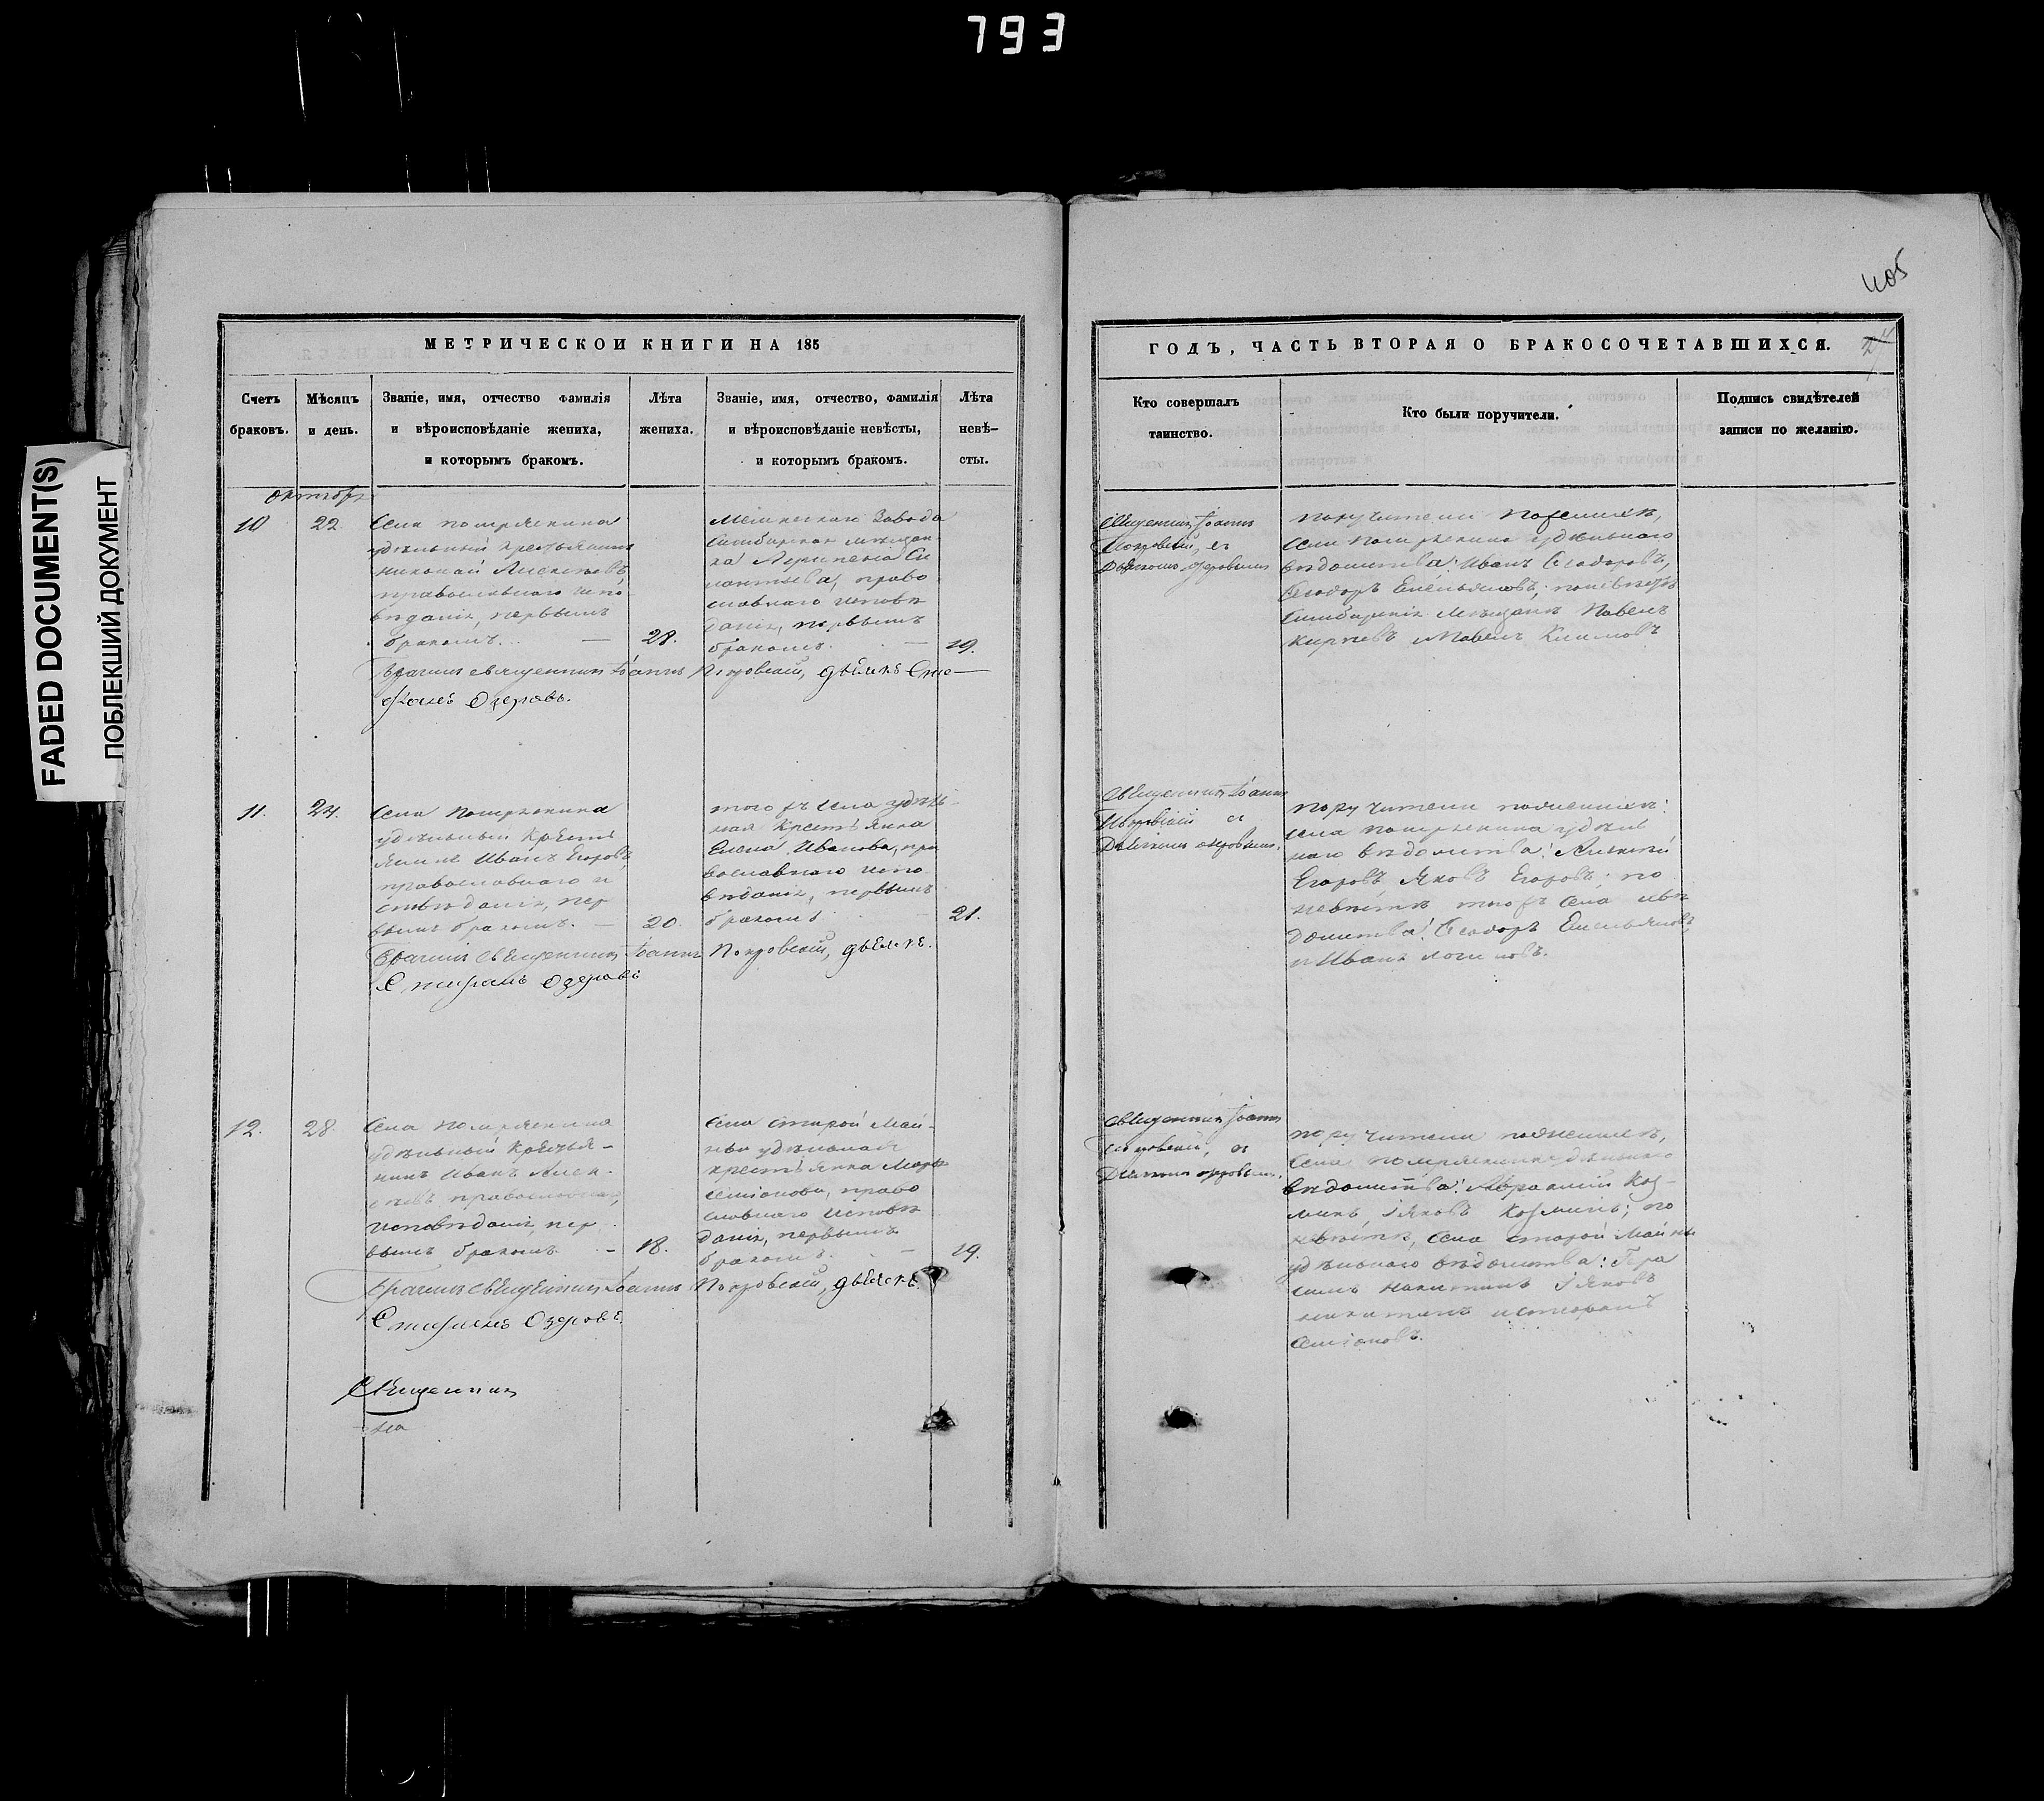 793
FADED DOCUMENT(S)
ПОБЛЕКШИЙ ДОКУМЕНТ
405
МЕТРИЧЕСКОЙ КНИГИ НА 185
Счетъ браковъ.
Мѣсяцъ и день.
Званіе, имя, отчество фамилія
и вѣроисповѣданіе жениха,
и которымъ бракомъ.
Лѣта жениха.
Званіе, имя, отчество, фамилія
и вѣроисповѣданіе невѣсты,
и которымъ бракомъ.
Лѣта невѣ-
сты.
октября
10
22.
Села помряскина
удѣльный крестьянинъ
николай Алексѣевъ,
православнаго испо
вѣданія, первымъ
бракомъ.
28.
завода
Симбирская мѣщан
ка
право
славнаго исповѣ
данія, первымъ
бракомъ.
19.
Бракъ священникъ Іоаннъ Покровскій, дьячекъ Сте
фанъ Озеровъ.
11.
24.
Села Помряскина
удѣльный Кресть
янинъ Иванъ Егоровъ,
православнаго и
сповѣданія, пер
вымъ бракомъ.
20.
того жъ села удѣль
ная Крестьянка
Елена Иванова, пра
вославнаго испо
вѣданія, первымъ
бракомъ
21.
священникъ Іоаннъ Покровскій, дьячекъ
Стефанъ Озеровъ
12.
28.
Села помряскина
удѣльный Крестья-
нинъ Иванъ Алек
сѣевъ православнаго
исповѣданія, пер
вымъ бракомъ.
18.
Села старой Май-
ны удѣльная
крестьянка Марья
Симіонова, право
славнаго исповѣ
данія, первымъ
бракомъ.
19.
священникъ Іоаннъ Покровскій, дьячекъ
Стефанъ Озеровъ
Священникъ
ГОДЪ, ЧАСТЬ ВТОРАЯ О БРАКОСОЧЕТАВШИХСЯ.
Кто совершалъ
таинство.
Кто были поручители.
Подпись свидѣтелей
записи по желанію.
Священникъ Іоаннъ
Покровскій, съ
Дьячкомъ озеровымъ
поручители по женихѣ,
села помряскина удѣльнаго
вѣдомства: Иванъ Ѳеодоровъ,
Ѳеодоръ Емельяновъ; по невѣстѣ
Симбирскія мѣщане Павелъ
и Павелъ Климовъ
священникъ Іоаннъ
Покровскій съ
Дьячкомъ озеровымъ.
поручители по женихѣ:
села помряскина удѣль
наго вѣдомства: Алексѣй
Егоровъ, Яковъ Егоровъ; по
невѣстѣ того жъ села и вѣ
домства: Ѳеодоръ Емельяновъ
и Иванъ логиновъ.
священникъ Іоаннъ
Покровскій, съ
Дьячкомъ озеровымъ.
поручители по женихѣ,
села помряскина удѣльнаго
вѣдомства: Авраамій Коз-
минъ, Іяковъ Козминъ; по
невѣстѣ, села старой Майны
удѣльнаго вѣдомства: Гера
симъ никитинъ Іяковъ
никитинъ и стефанъ
Симіоновъ.